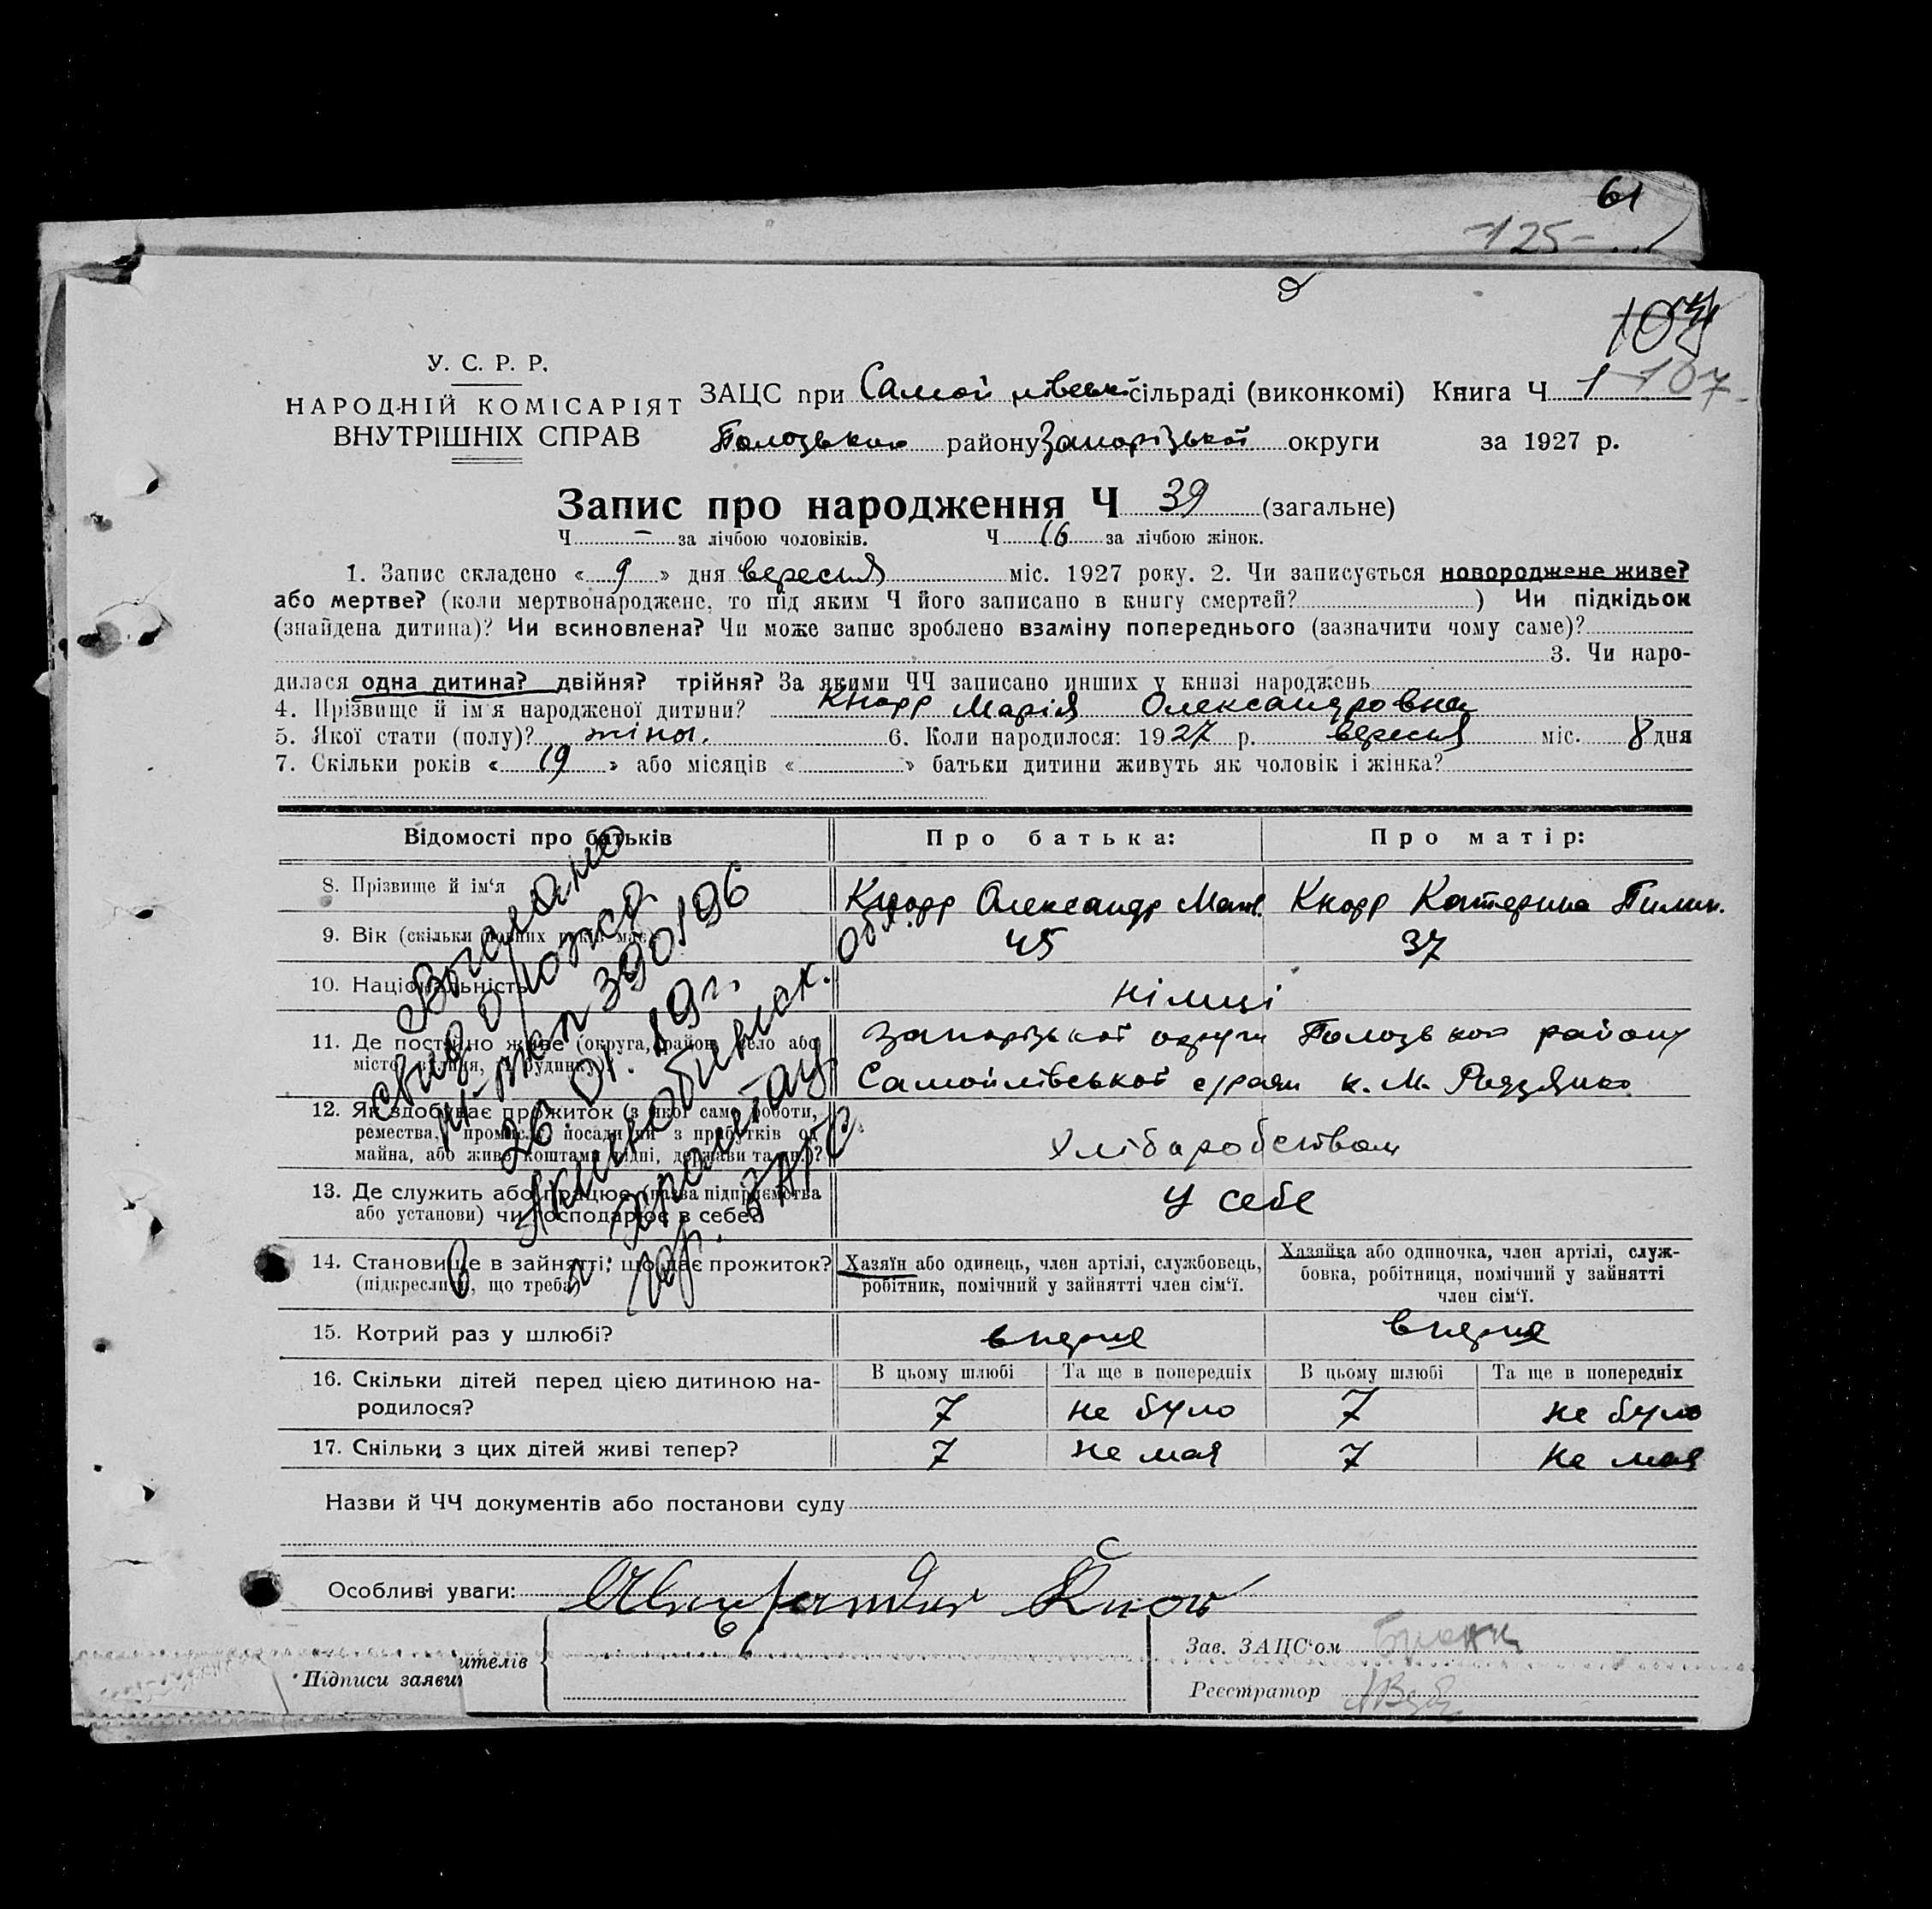 61
-125-
107
У. С. Р. Р.
НАРОДНІЙ КОМІСАРІЯТ
ВНУТРІШНІХ СПРАВ
ЗАЦС при сільраді (виконкомі) Книга Ч 1
Пологівського району Запорізької округи за 1927 р.
Запис про народження Ч 39 (загальне)
Ч – за лічбою чоловіків. Ч 16 за лічбою жінок.
1. Запис складено « 9 » дня вересня міс. 1927 року. 2. Чи записується новороджене живе?
або мертве? (коли мертвонароджене, то під яким Ч його записано в книгу смертей? ) Чи підкідьок
(знайдена дитина)? Чи всиновлена? Чи може запис зроблено взаміну попереднього (зазначити чому саме)?
3. Чи наро-
дилася одна дитина? двійня? трійня? За якими ЧЧ записано инших у книзі народжень
4. Прізвище й ім'я народженої дитини? Кнорр Марія Олександровна
5. Якої стати (полу)? жіноч. 6. Коли народилося: 1927 р. вересня міс. 8 дня
7. Скільки років « 19 » або місяців « » батьки дитини живуть як чоловік і жінка?
Відомості про батьків Про батька: Про матір:
8. Прізвище й ім'я Кнорр Олександр Кнорр Катерина
9. Вік (скільки повних років має) 45 37
10. Національність німці
11. Де постійно живе (округа, район, село або Запорізької округи району
місто, вулиця, ч. будинку) Самойлівської с/ради
12. Як здобуває прожиток (з якої саме роботи,
ремества, промислу, посади чи з прибутків од
майна, або живе коштами рідні, держави та ин.)? Хліборобством
13. Де служить або працює (назва підприємства
або установи) чи господарює в себе? У себе
14. Становище в зайнятті, що дає прожиток?
(підкреслити, що треба)
Хазяїн або одинець, член артілі, службовець,
робітник, помічний у зайнятті член сім'ї.
Хазяйка або одиночка, член артілі, служ-
бовка, робітниця, помічний у зайнятті
член сім'ї.
15. Котрий раз у шлюбі? вперше вперше
16. Скільки дітей перед цією дитиною на-
родилося?
В цьому шлюбі Та ще в попередніх В цьому шлюбі Та ще в попередніх
7 не було 7 не було
17. Скільки з цих дітей живі тепер? 7 не має 7 не має
Назви й ЧЧ документів або постанови суду
Особливі уваги:
Alexander Knorr
Підписи заявителів
Зав. ЗАЦС'ом
Реєстратор
390196
26. 01. 89г.